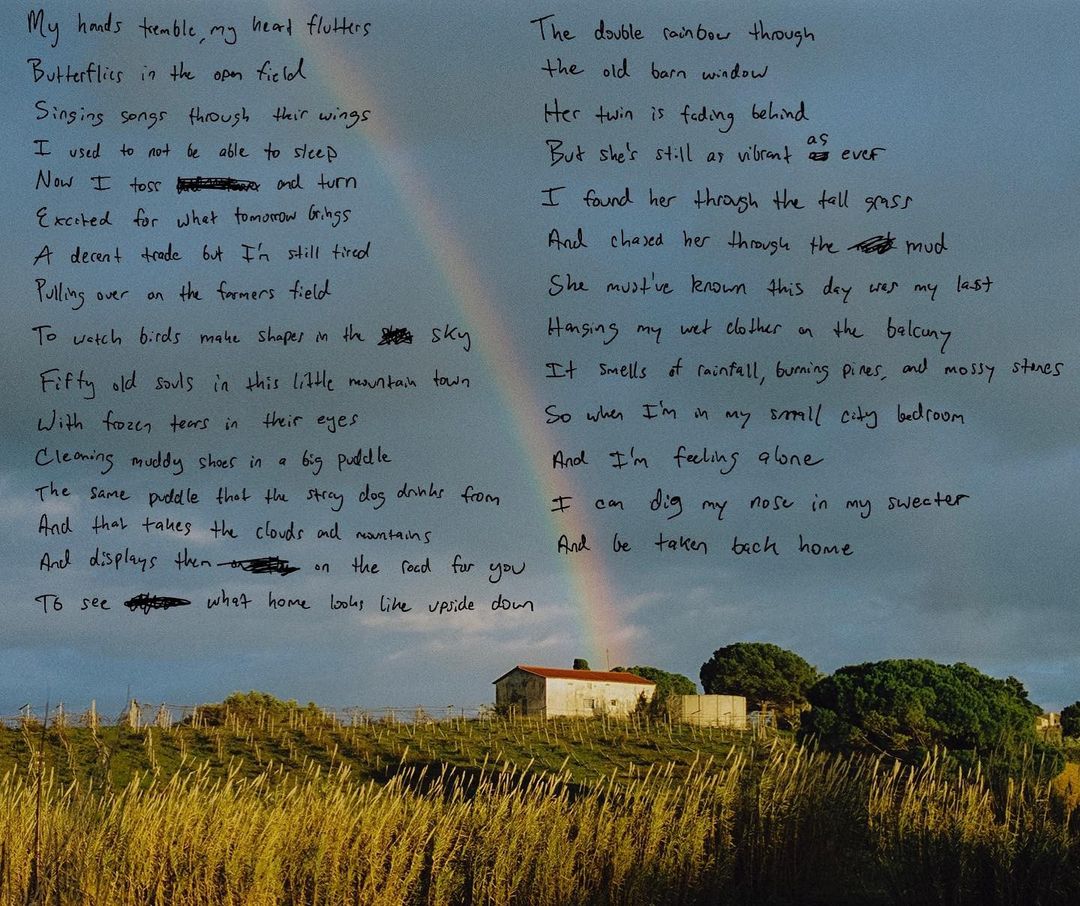 My hands tremble, my heart flutters
Butterflies in the open field
Singing songs through their wings
I used to not be able to sleep
Now I toss and turn
Excited for what tomorrow brings
A decent trade but I'm still tired
Pulling over on the farmers field
To watch birds make shapes in the sky
Fifty old souls in this little mountain town
With frozen tears in their eyes
Cleaning muddy shoes in a big puddle
The same puddle that the stray dog drinks from
And that takes the clouds and mountains
And displays them on the road for you
To see what home looks like upside down
The double rainbow through
the old barn window
Her twin is fading behind
But she's still as vibrant as ever
I found her through the tall grass
And chased her through the mud
She must've known this day was my last
Hanging my wet clothes on the balcony
It smells of rainfall, burning pines, and mossy stones
So when I'm in my small city bedroom
And I'm feeling alone
I can dig my nose in my sweater
And be taken back home